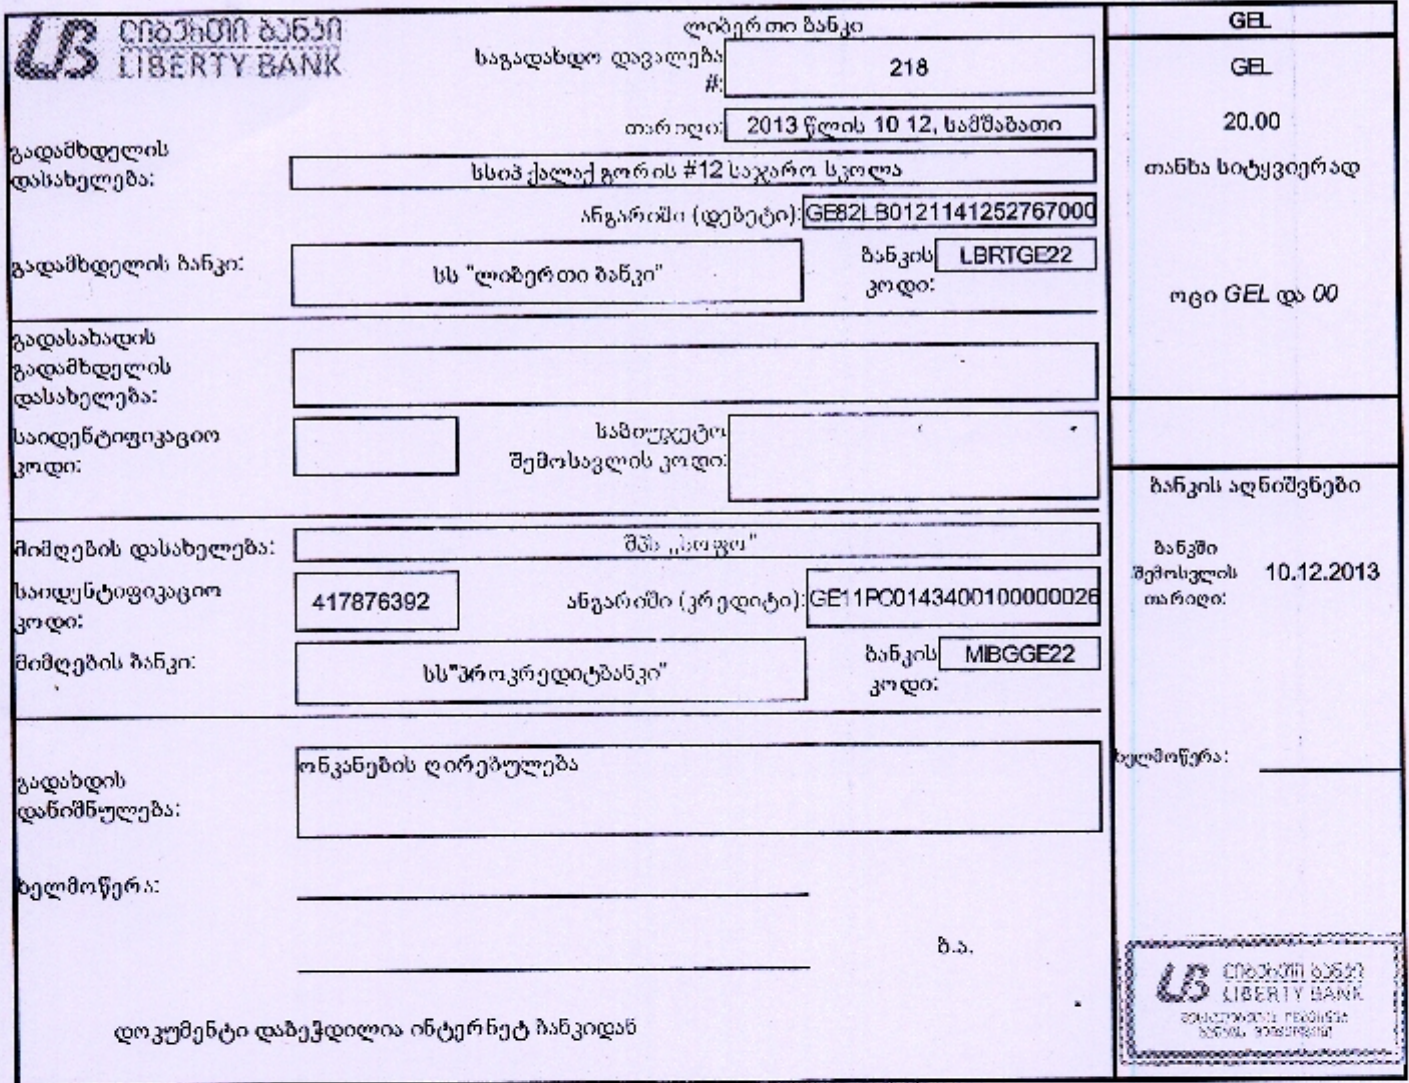 ლიბერთი ბანკი
LIBERTY BANK
ლიბერთი ბანკი
საგადახდო დავალება #: 218
თარიღი: 2013 წლის 10 12, სამშაბათი
გადამხდელის დასახელება: სსიპ ქალაქ გორის #12 საჯარო სკოლა
ანგარიში (დებეტი): GE82LB0121141252767000
გადამხდელის ბანკი: სს "ლიბერთი ბანკი"
ბანკის კოდი: LBRTGE22
გადასახადის გადამხდელის დასახელება:
საიდენტიფიკაციო კოდი:
საბიუჯეტო შემოსავლის კოდი:
მიმღების დასახელება: შპს ,,სოფო"
საიდენტიფიკაციო კოდი: 417876392
ანგარიში (კრედიტი): GE11PC0143400100000026
მიმღების ბანკი: სს"პროკრედიტბანკი"
ბანკის კოდი: MIBGGE22
გადახდის დანიშნულება: ონკანების ღირებულება
ხელმოწერა:
ბ.ა.
დოკუმენტი დაბეჭდილია ინტერნეტ ბანკიდან
GEL
GEL
20.00
თანხა სიტყვიერად
ოცი GEL და 00
ბანკის აღნიშვნები
ბანკში შემოსვლის თარიღი: 10.12.2013
ხელმოწერა:
ლიბერთი ბანკი
LIBERTY BANK